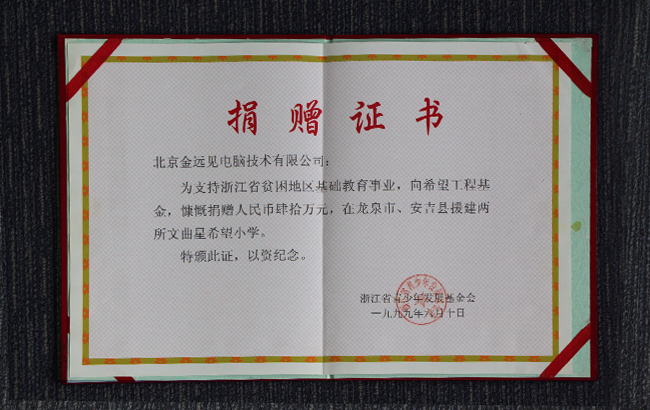 捐赠证书
北京金远见电脑技术有限公司：
为支持浙江省贫困地区基础教育事业，向希望工程基
金，慷慨捐赠人民币肆拾万元，在龙泉市、安吉县援建两
所文曲星希望小学。
特颁此证，以资纪念。
浙江省青少年发展基金会
一九九九年六月十日